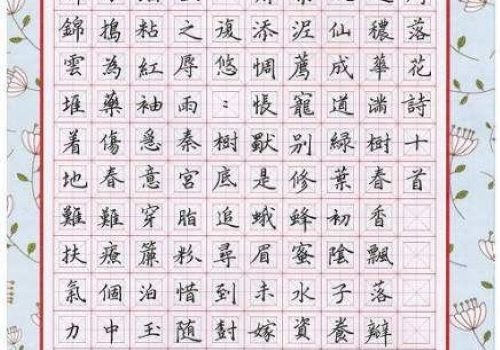 落花詩十首
穠華滿樹春香飄落瓣
仙成道綠葉初陰子養
泥薦寵別修蜂蜜水資
添惆悵是蛾眉未嫁
復悠：樹底追尋到
之辱雨秦宮脂粉惜随
粘紅袖意穿簾泊玉
搗為藥傷春難療個中
錦雲堆着地難扶氣力